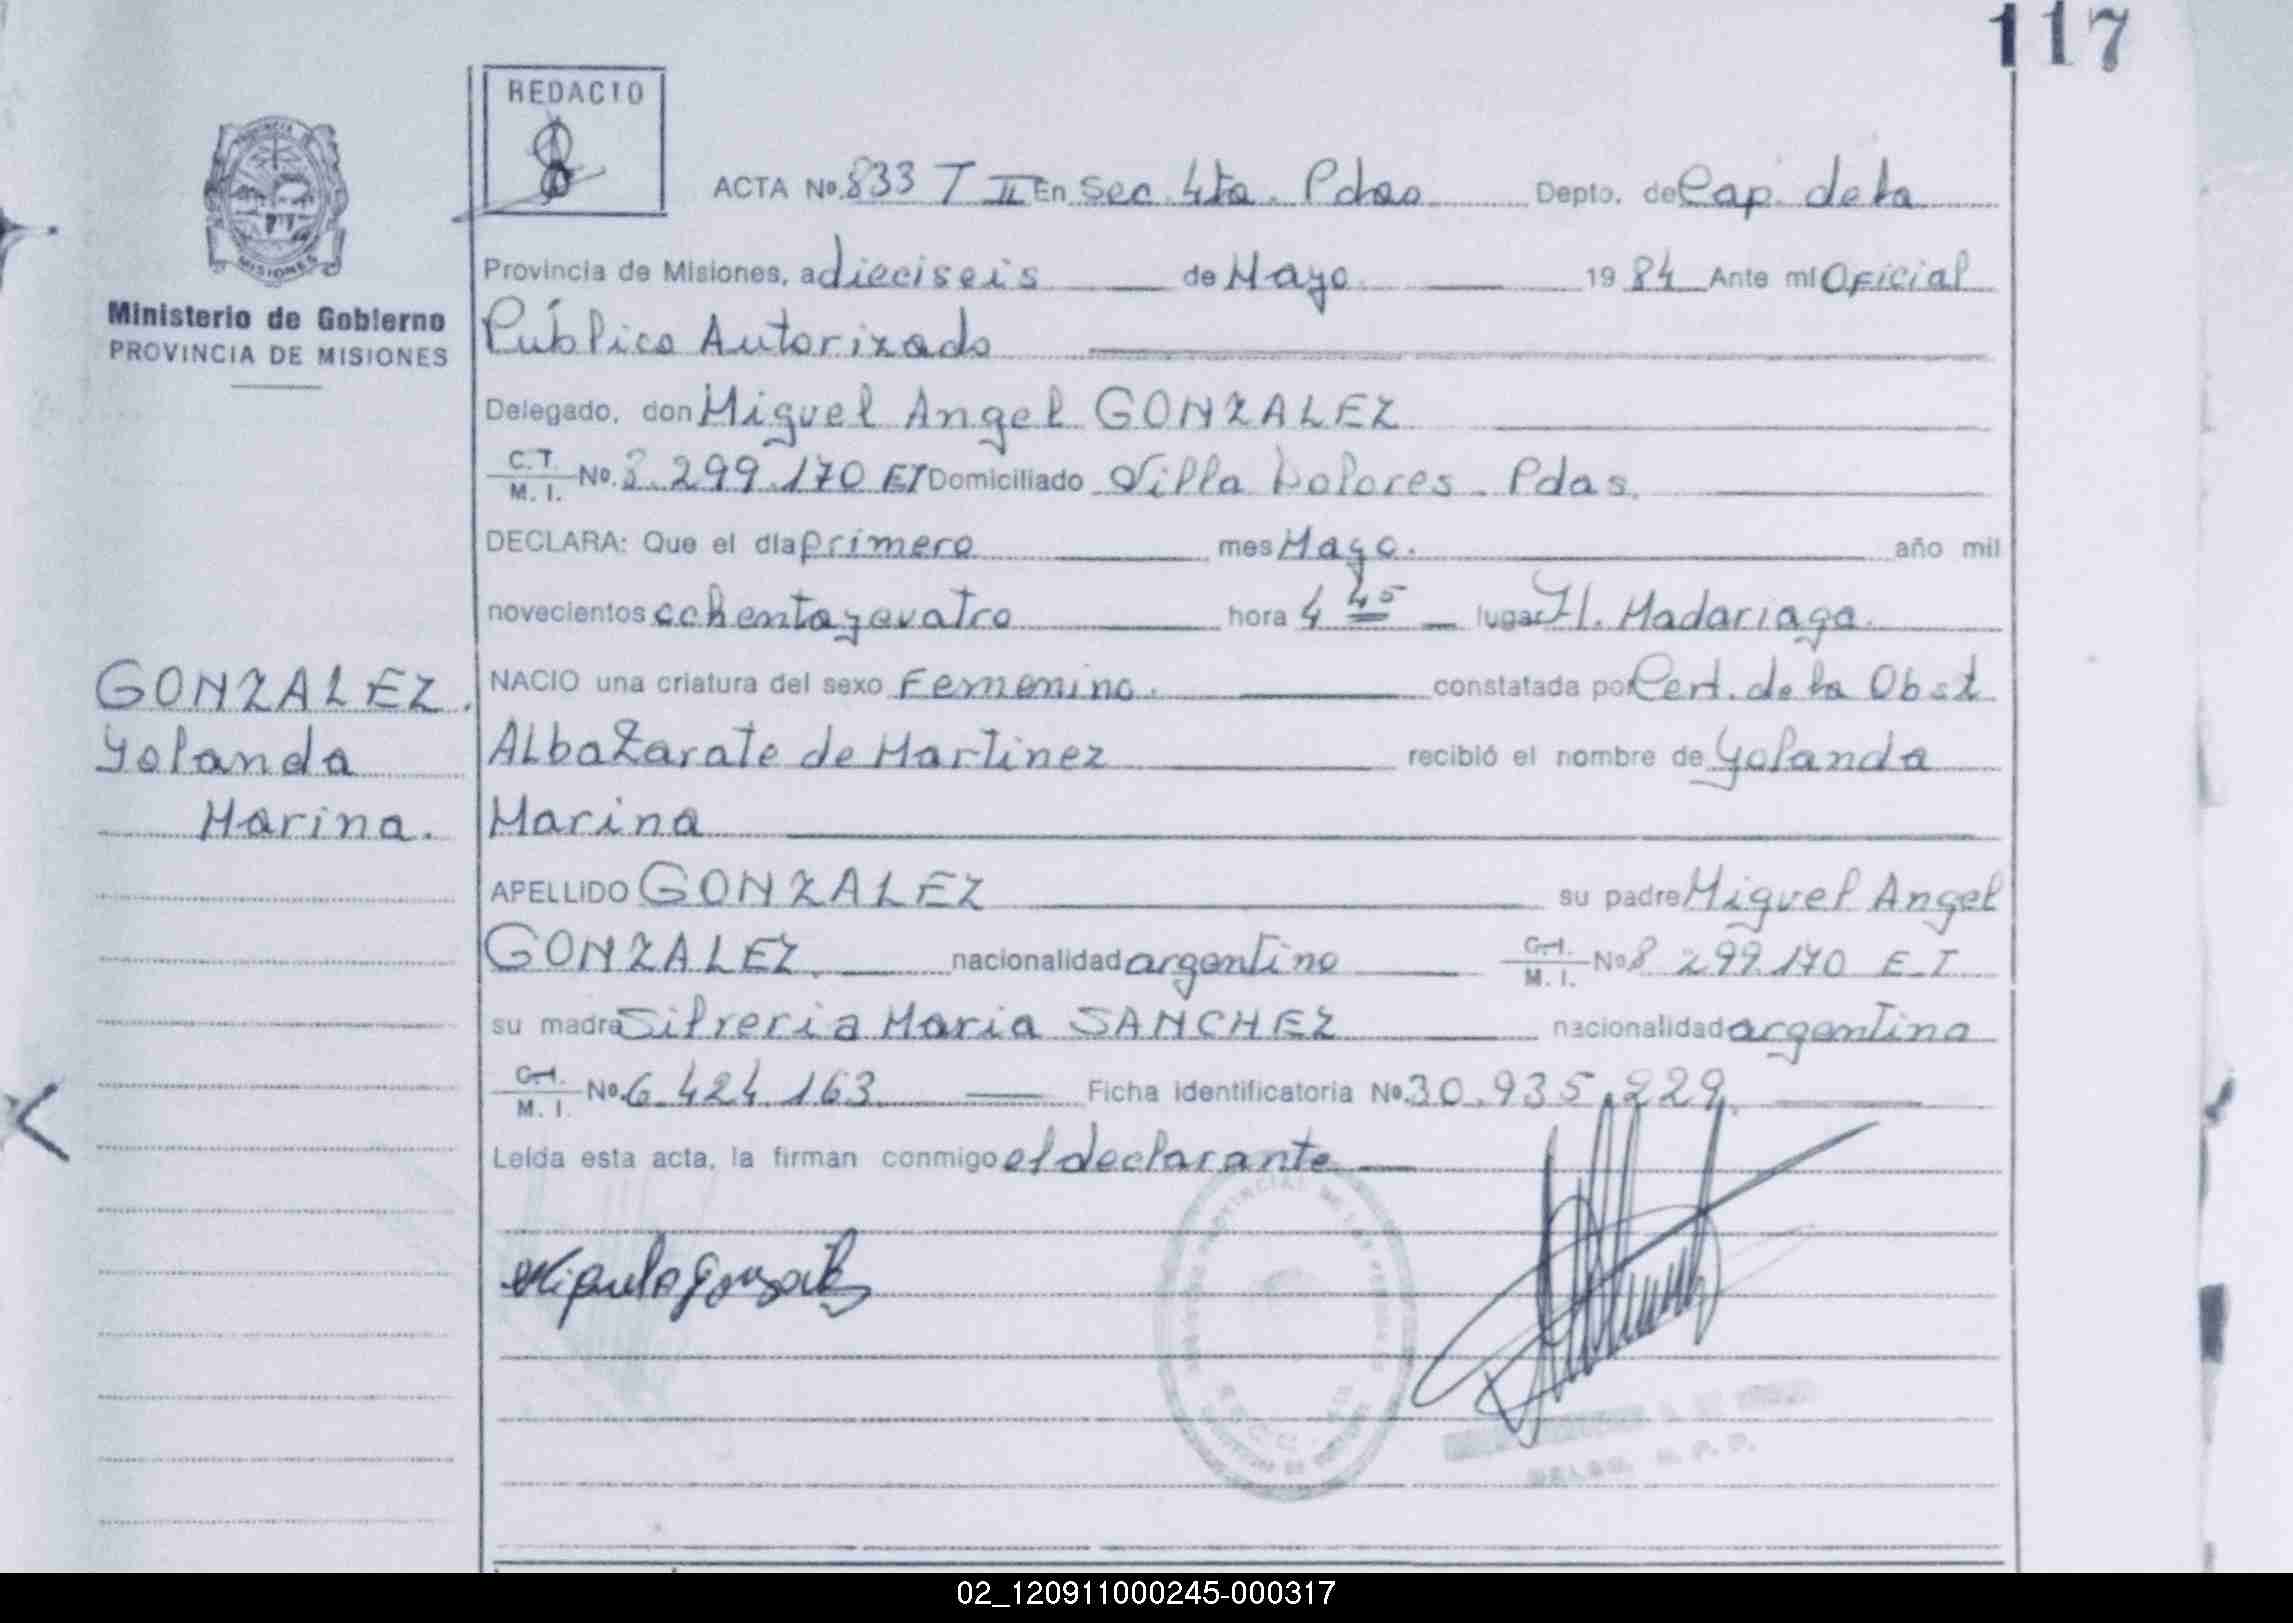 117
REDACTO
ACTA No. 833 T II En Sec. 4ta. Pdas Depto. de Cap. de la
Provincia de Misiones, a dieciseis de Mayo 19 84 Ante mí Oficial
Público Autorizado
Delegado, don Miguel Angel GONZALEZ
C.T.
M. I. No. 8.299.170 EI Domiciliado Villa Dolores - Pdas.
DECLARA: Que el día primero mes Mayo. año mil
novecientos ochenta y cuatro hora 4 45 lugar H. Madariaga.
NACIO una criatura del sexo Femenino. constatada por Cert. de la Obst
Alba Zarate de Martinez recibió el nombre de Yolanda
Marina
APELLIDO GONZALEZ su padre Miguel Angel
GONZALEZ. nacionalidad argentino C.I.
M. I. No 8 299.170 E.I
su madre Silveria Maria SANCHEZ nacionalidad argentina
C.I.
M. I. No. 6.424.163 Ficha identificatoria No. 30.935.229.
Leída esta acta, la firman conmigo el declarante
PROVINCIA DE
MISIONES
Ministerio de Gobierno
PROVINCIA DE MISIONES
GONZALEZ.
Yolanda
Marina.
02_120911000245-000317